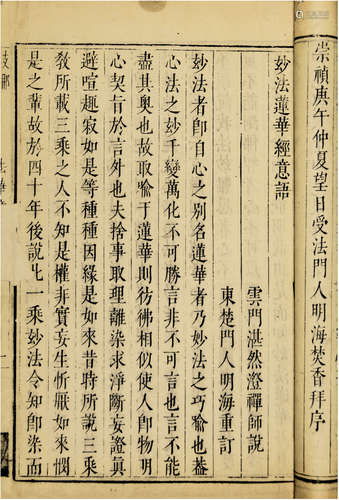 崇禎庚午仲夏望日受法門人明海焚香拜序
妙法蓮華經意語
雲門湛然澄禪師說
東楚門人明海重訂
妙法者卽自心之別名蓮華者乃妙法之巧喻也葢
心法之妙千變萬化不可勝言非不可言也言不能
盡其奧也故取喻于蓮華則彷彿相似使人卽物明
心契旨於言外也夫捨事取理離染求淨斷妄證真
避喧趣寂如是等種種因緣是如來昔時所說三乘
教所載三乘之人不知是權非實妄生忻厭如來憫
是之輩故於四十年後說此一乘妙法令知卽染而